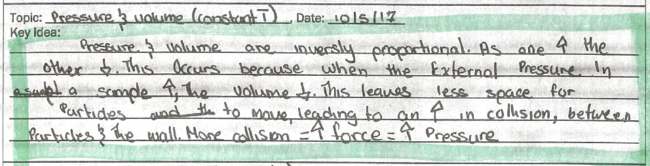 Topic: Pressure & volume (constant T) Date: 10/5/17
Key Idea:
Pressure & Volume are inversly proportional. As one ↑ the
other ↓. This Occurs because when the External Pressure In
a sample ↑, The Volume ↓. This leaves less space for
Particles to Move, leading to an ↑ in collision, between
Particles & The wall. More collision = ↑ force = ↑ Pressure